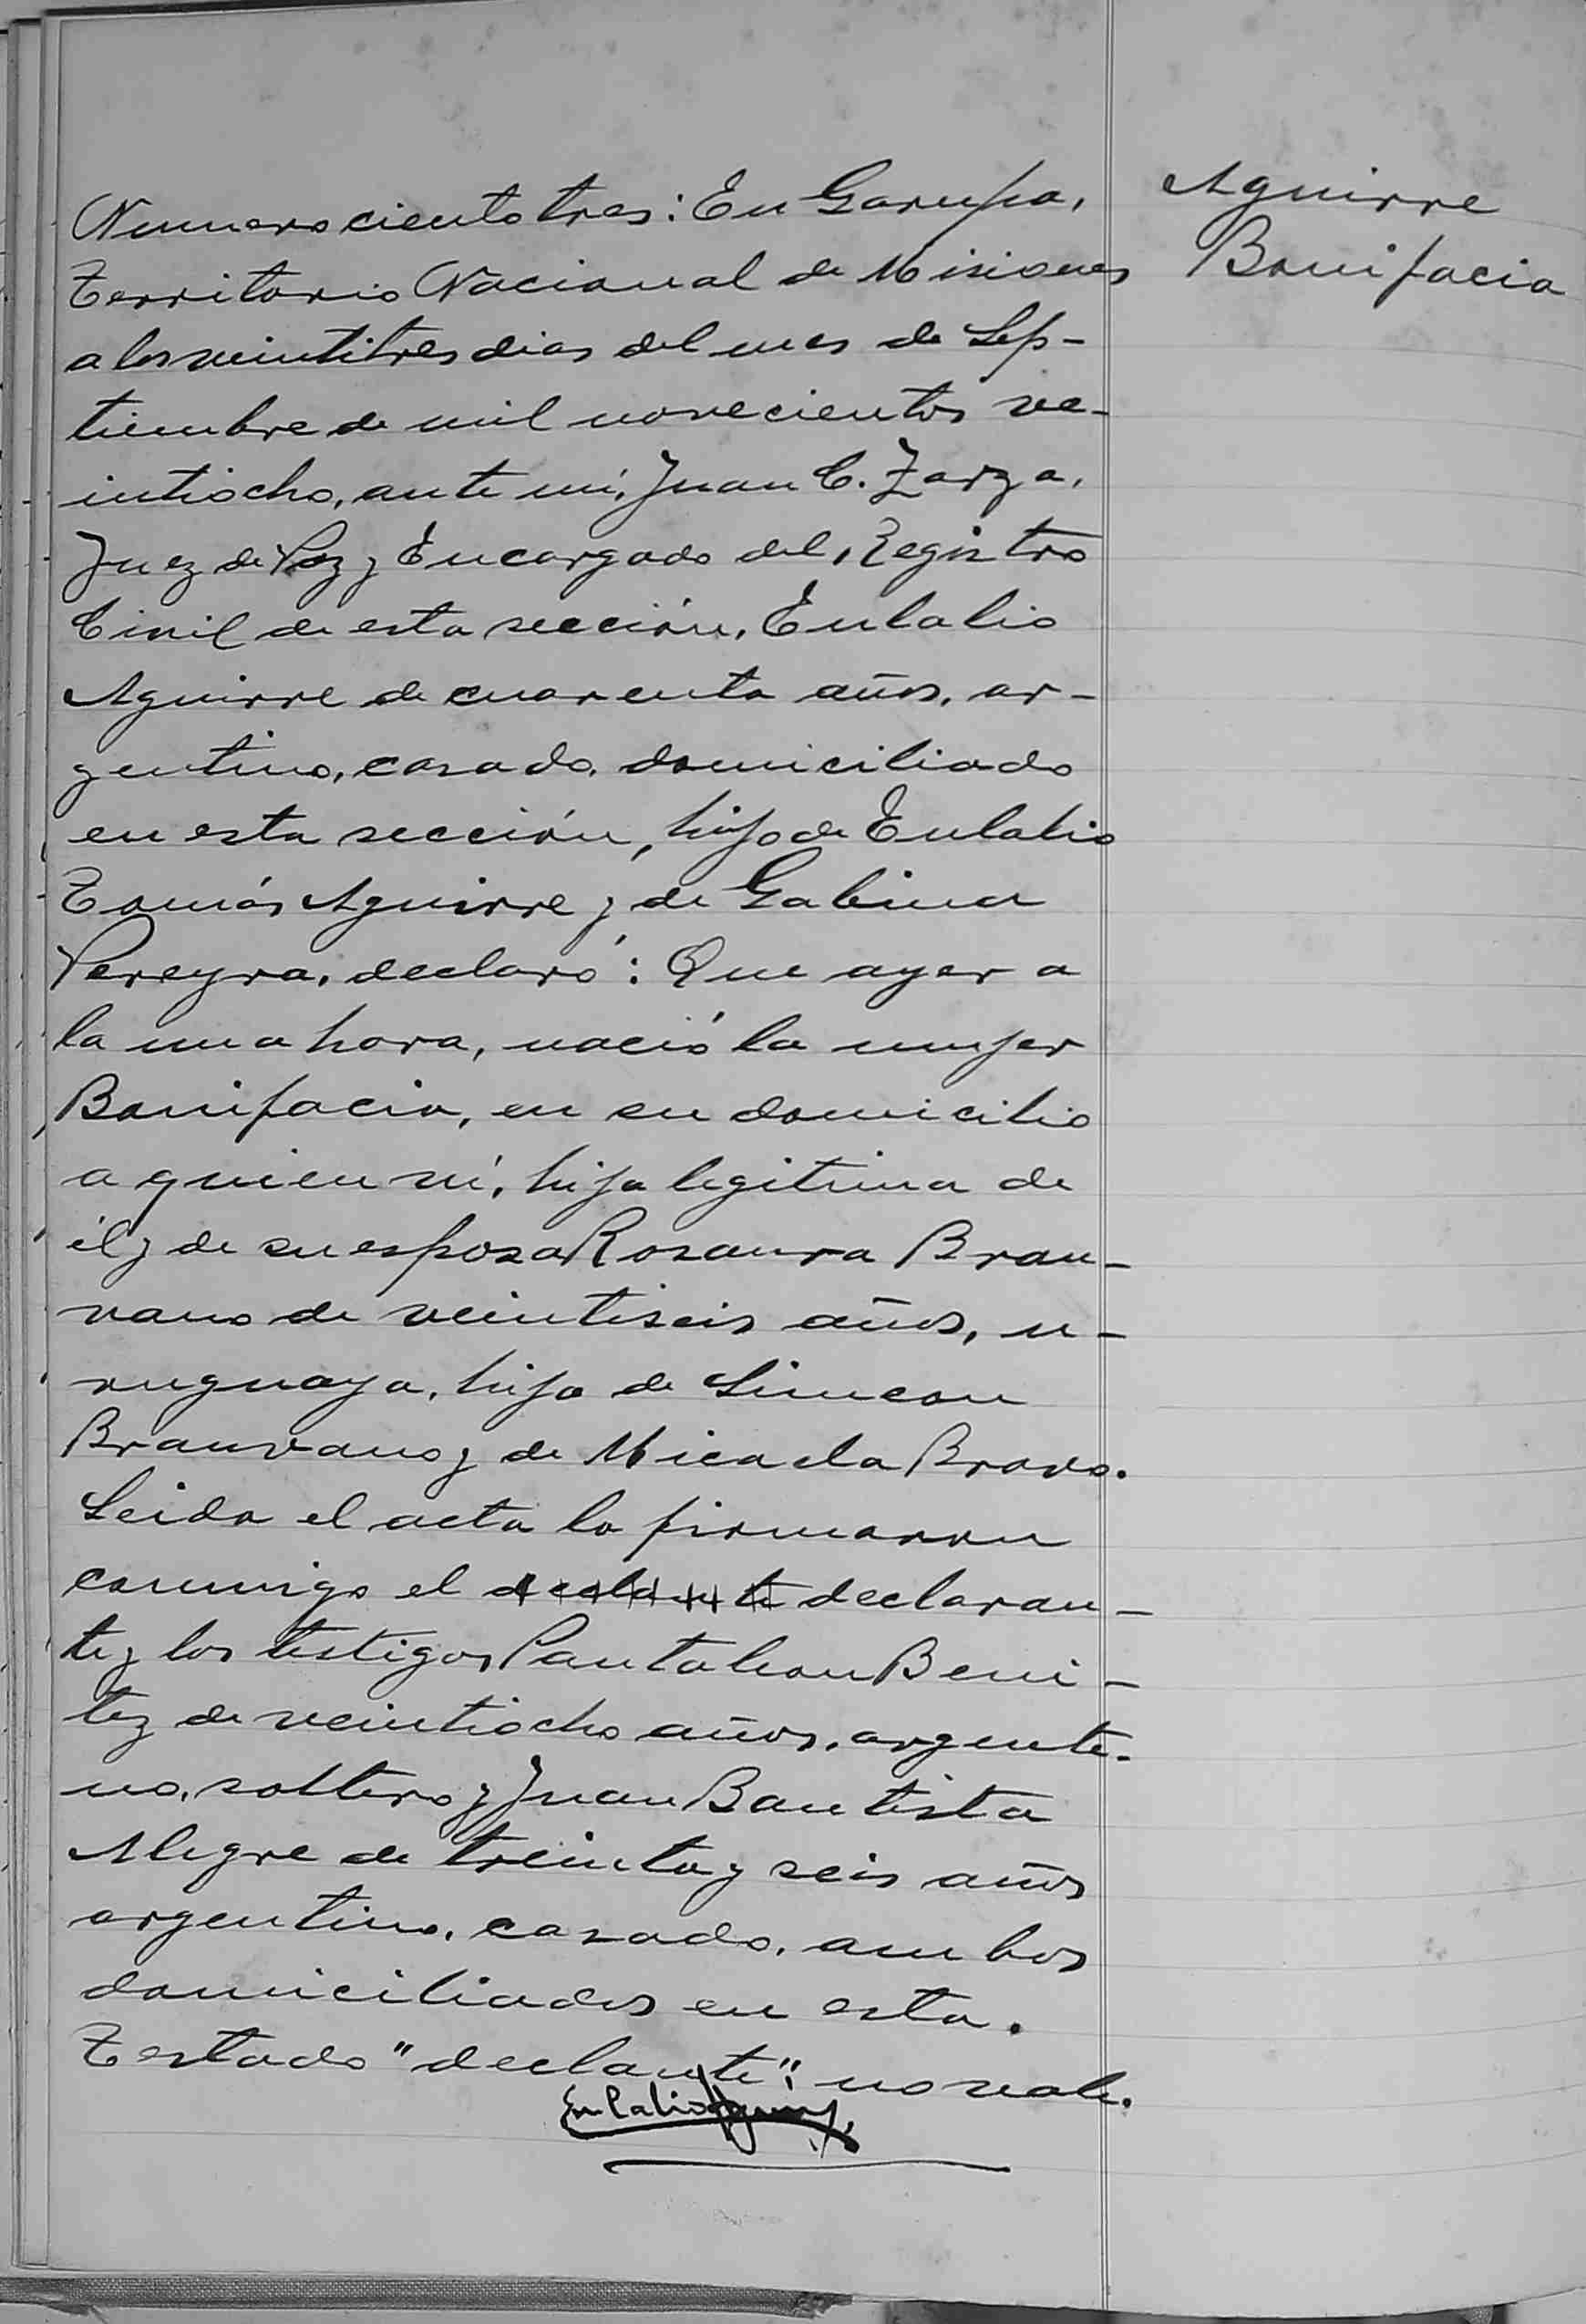 Aguirre
Bonifacia
Numero ciento tres: En Garupa,
Territorio Nacional de Misiones
a los veintitres dias del mes de Sep-
tiembre de mil novecientos ve-
intiocho, ante mí, Juan C. Zarza,
Juez de Paz y Encargado del Registro
Civil de esta sección, Eulalio
Aguirre de cuarenta años, ar-
gentino, casado, domiciliado
en esta sección, hijo de Eulalio
Tomás Aguirre y de Gabina
Pereyra, declaró: Que ayer a
la una hora, nació la mujer
Bonifacia, en su domicilio
a quien ví, hija legitima de
él y de su esposa Rosaura Brau-
vano de veintiseis años, u-
ruguaya, hija de Simeon
Brauvano y de Micaela Bravo.
Leida el acta la firmaron
conmigo el declante declaran-
te y los testigos Pantaleon Beni-
tez de veintiocho años, argenti-
no, soltero y Juan Bautista
Alegre de treinta y seis años
argentino, casado, ambos
domiciliados en esta.
Testado "declante": no vale.
Eulalio Aguirre